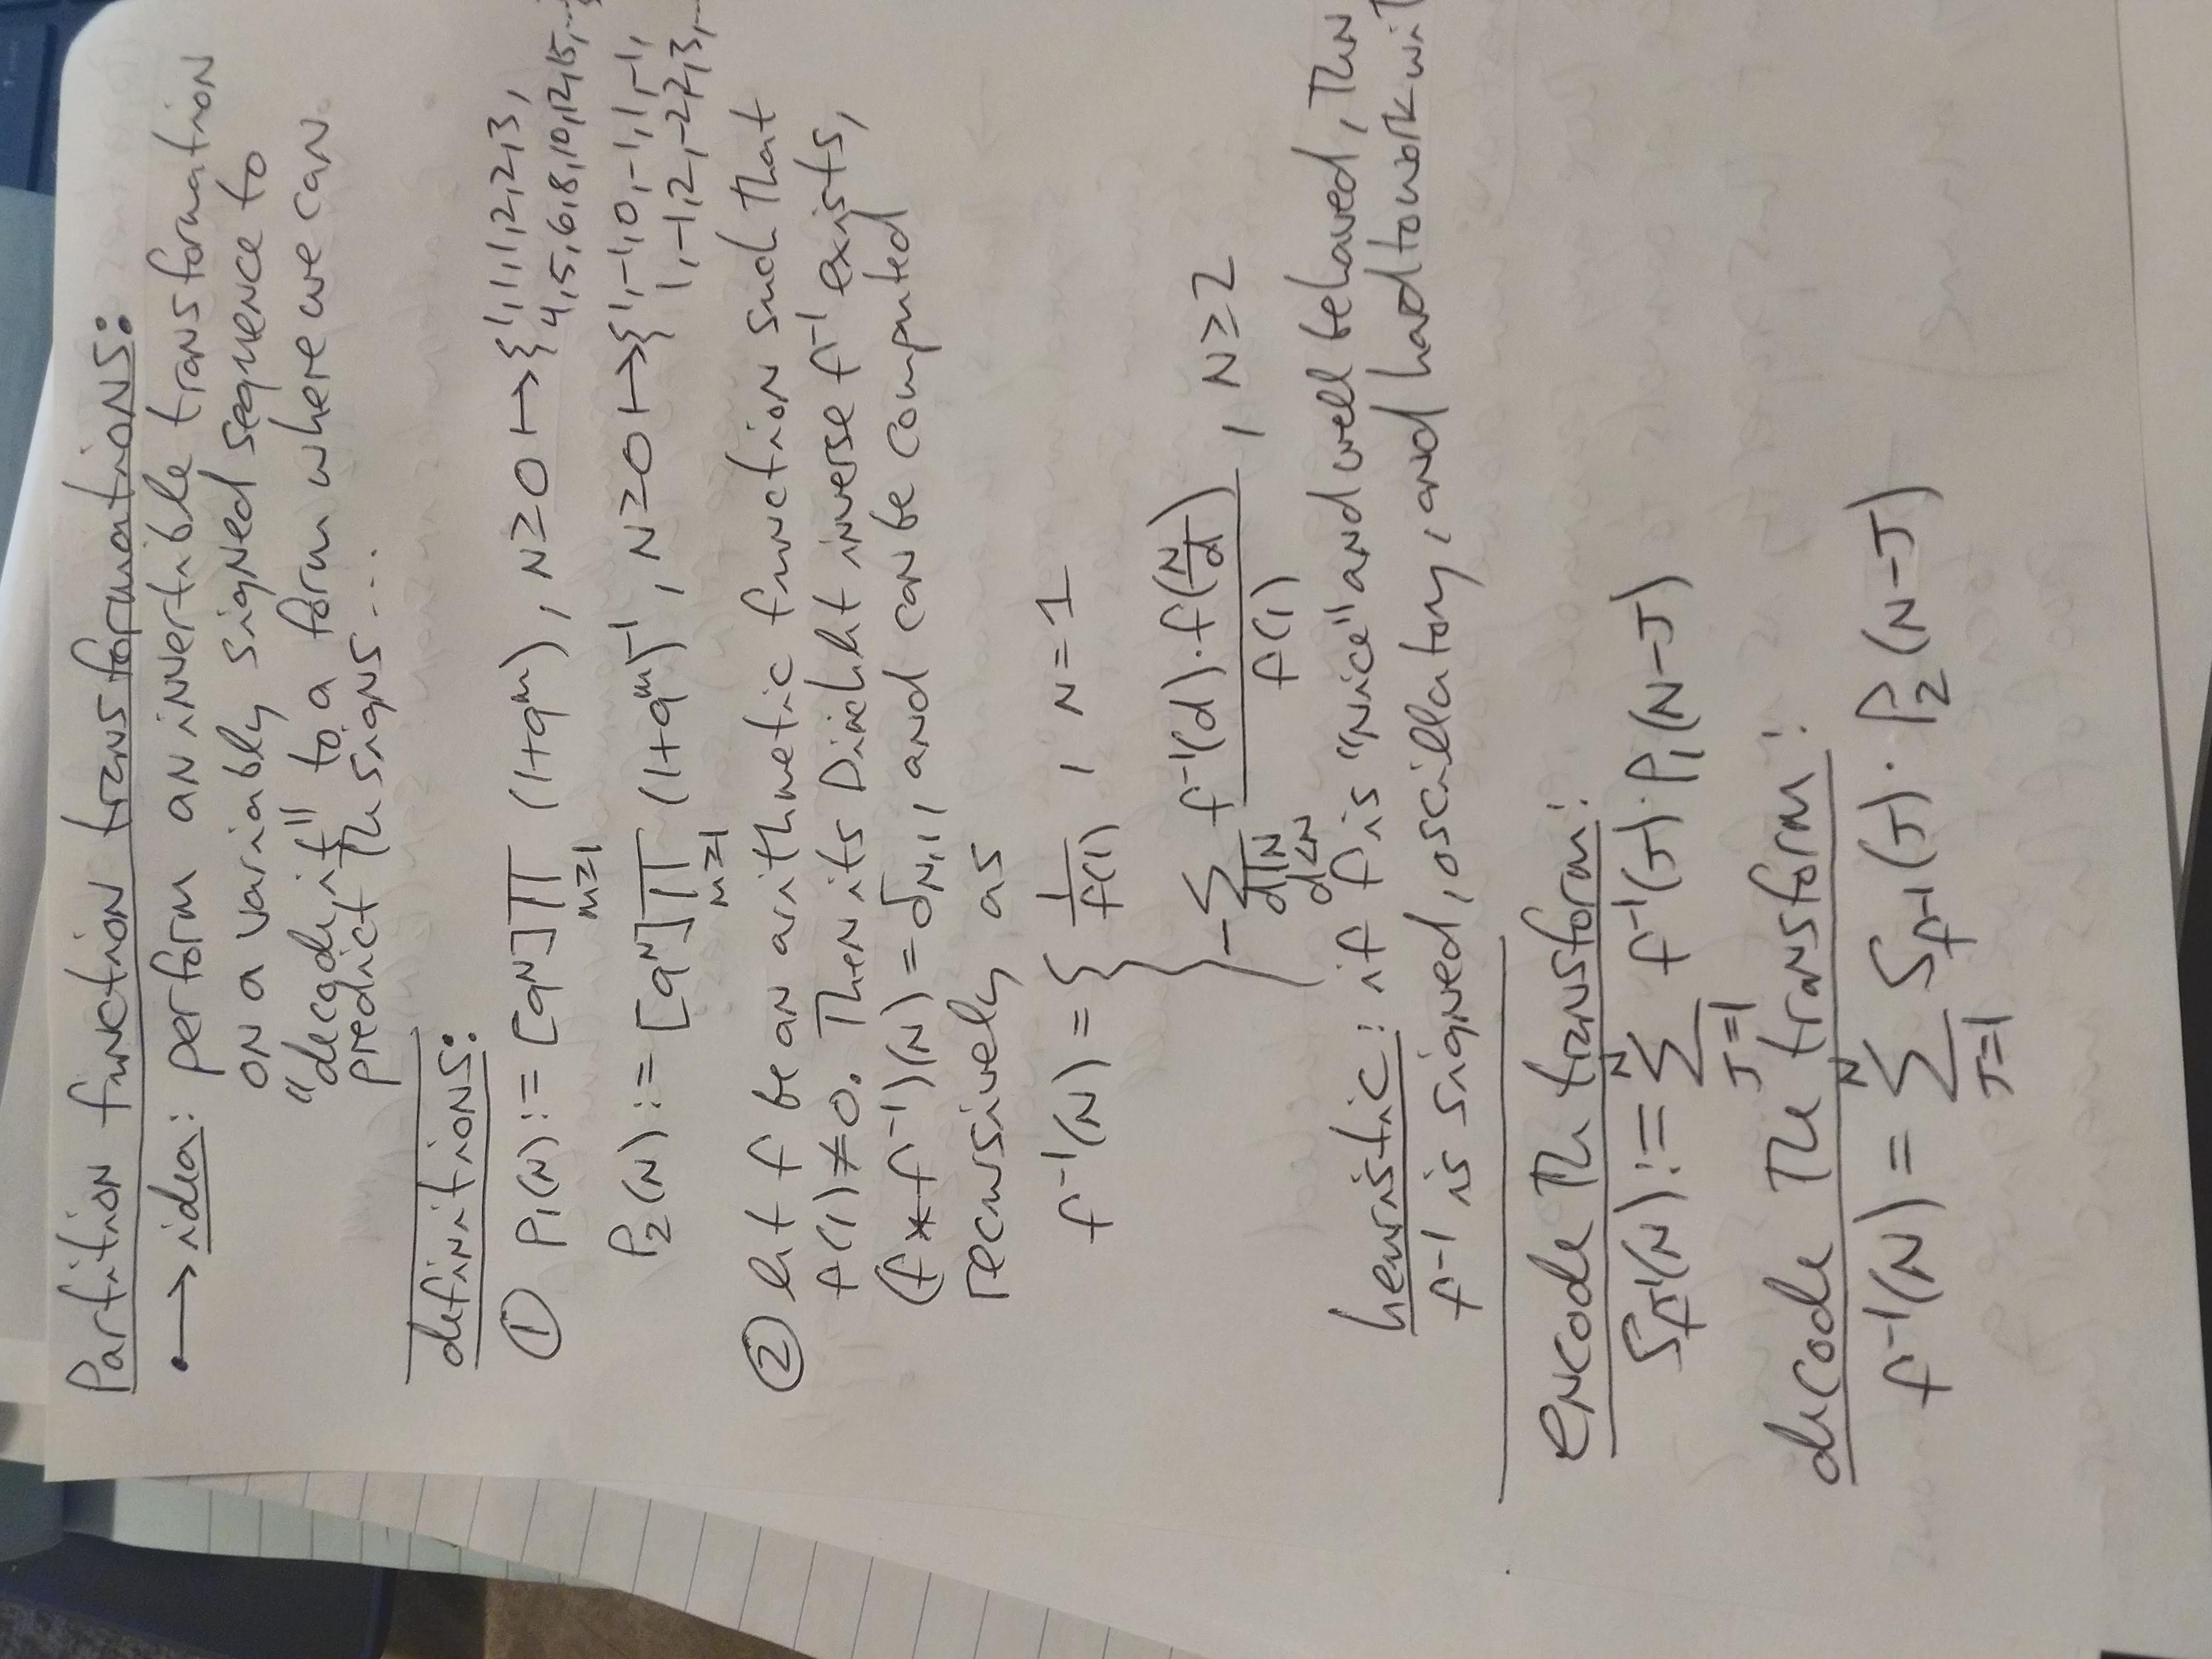 Partition function transformations:
•→ idea: perform an invertible transformation
on a variably signed sequence to
"decode it" to a form where we can
predict the signs...
definitions:
① P₁(N) := [q^N] ∏_{m≥1} (1+q^m), N≥0 ↦ {1,1,1,2,2,3,
4,5,6,8,10,12,15,...}
P₂(N) := [q^N] ∏_{m≥1} (1+q^m)^{-1}, N≥0 ↦ {1,-1,0,-1,1,-1,
1,-1,2,-2,2,3,...
② let f be an arithmetic function such that
f(1)≠0. Then its Dirichlet inverse f^{-1} exists,
(f*f^{-1})(N) = δ_{N,1}, and can be computed
recursively as
f^{-1}(N) = { 1/f(1) , N=1
-∑_{d|N, d<N} f^{-1}(d)·f(N/d) / f(1) , N≥2
heuristic: if f is "nice" and well behaved, then
f^{-1} is signed, oscillatory, and hard to work wit
encode the transform:
S_{f^{-1}}(N) := ∑_{J=1}^{N} f^{-1}(J)·P₁(N-J)
decode the transform:
f^{-1}(N) = ∑_{J=1}^{N} S_{f^{-1}}(J)·P₂(N-J)